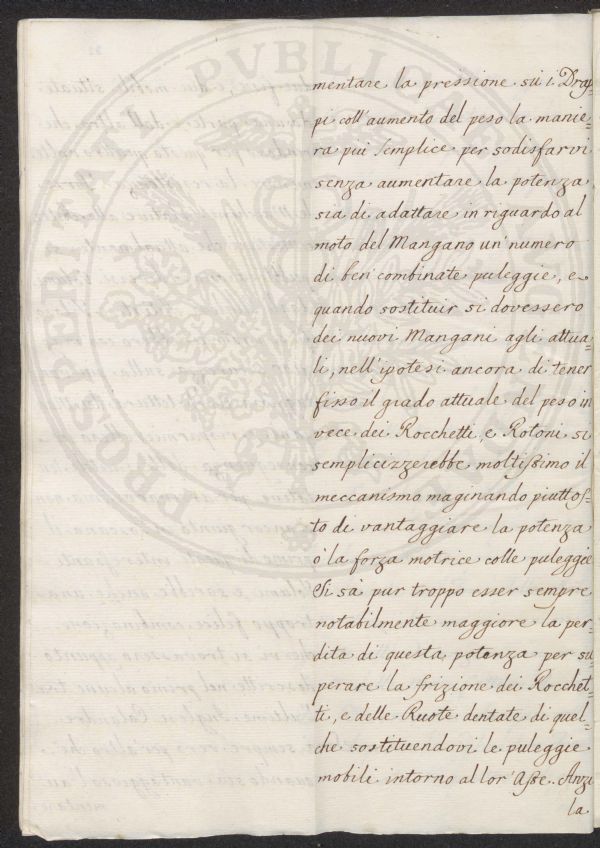 mentare la pressione sù i Drap=
pi coll'aumento del peso la manie=
ra piu semplice per sodisfarvi
senza aumentare la potenza
sia di adattare in riguardo al
moto del Mangano un' numero
di ben' combinate puleggie, e
quando sostituir si dovessero
dei nuovi Mangani agli attua=
li, nell'ipotesi ancora di tener
fisso il grado attuale del peso in
vece dei Rocchetti, e Rotoni si
semplicizzerebbe moltissimo il
meccanismo maginando piuttos=
to di vantaggiare la potenza
o' la forza motrice colle puleggie
Si sà pur troppo esser sempre
notabilmente maggiore la per=
dita di questa potenza per su
perare la frizione dei Rocchet=
ti, e delle Ruote dentate di quel=
che sostituendovi le puleggie
mobili intorno al lor' Asse. Anzi
la
PROSPERITATI PUBLICAE